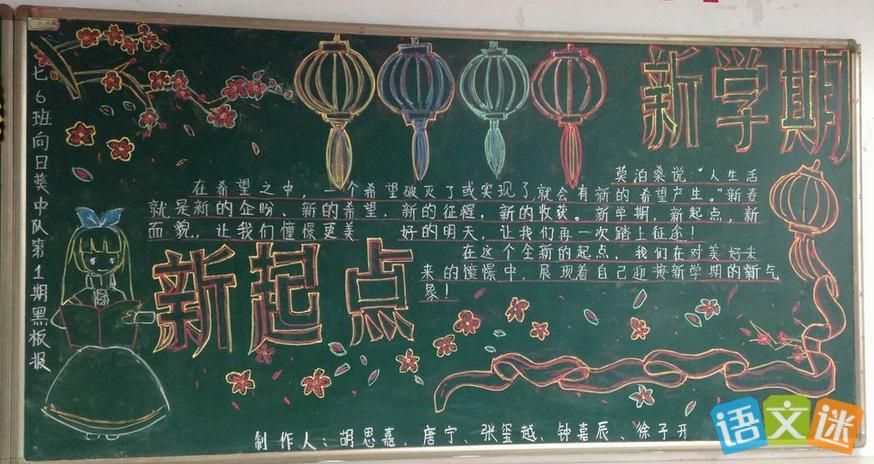 七6班向日葵中队第1期黑板报
新学期
莫泊桑说:“人生活
在希望之中，一个希望破灭了或实现了,就会有新的希望产生。”新春
就是新的企盼、新的希望，新的征程，新的收获。新学期，新起点，新
面貌，让我们憧憬更美 好的明天，让我们再一次踏上征途！
在这个全新的起点，我们在对美好未
来的憧憬中，展现着自己迎接新学期的新气
象！
新起点
制作人：胡思嘉、唐宁、张玺越、钟嘉辰、徐子开
语文迷